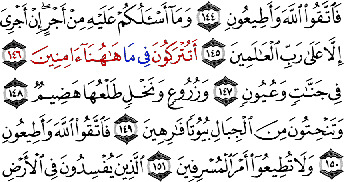 فَٱتَّقُوا۟ ٱللَّهَ وَأَطِيعُونِ ١٤٤ وَمَآ أَسْـَٔلُكُمْ عَلَيْهِ مِنْ أَجْرٍ ۖ إِنْ أَجْرِىَ
إِلَّا عَلَىٰ رَبِّ ٱلْعَـٰلَمِينَ ١٤٥ أَتُتْرَكُونَ فِى مَا هَـٰهُنَآ ءَامِنِينَ ١٤٦
فِى جَنَّـٰتٍ وَعُيُونٍ ١٤٧ وَزُرُوعٍ وَنَخْلٍ طَلْعُهَا هَضِيمٌ ١٤٨
وَتَنْحِتُونَ مِنَ ٱلْجِبَالِ بُيُوتًا فَـٰرِهِينَ ١٤٩ فَٱتَّقُوا۟ ٱللَّهَ وَأَطِيعُونِ
١٥٠ وَلَا تُطِيعُوٓا۟ أَمْرَ ٱلْمُسْرِفِينَ ١٥١ ٱلَّذِينَ يُفْسِدُونَ فِى ٱلْأَرْضِ